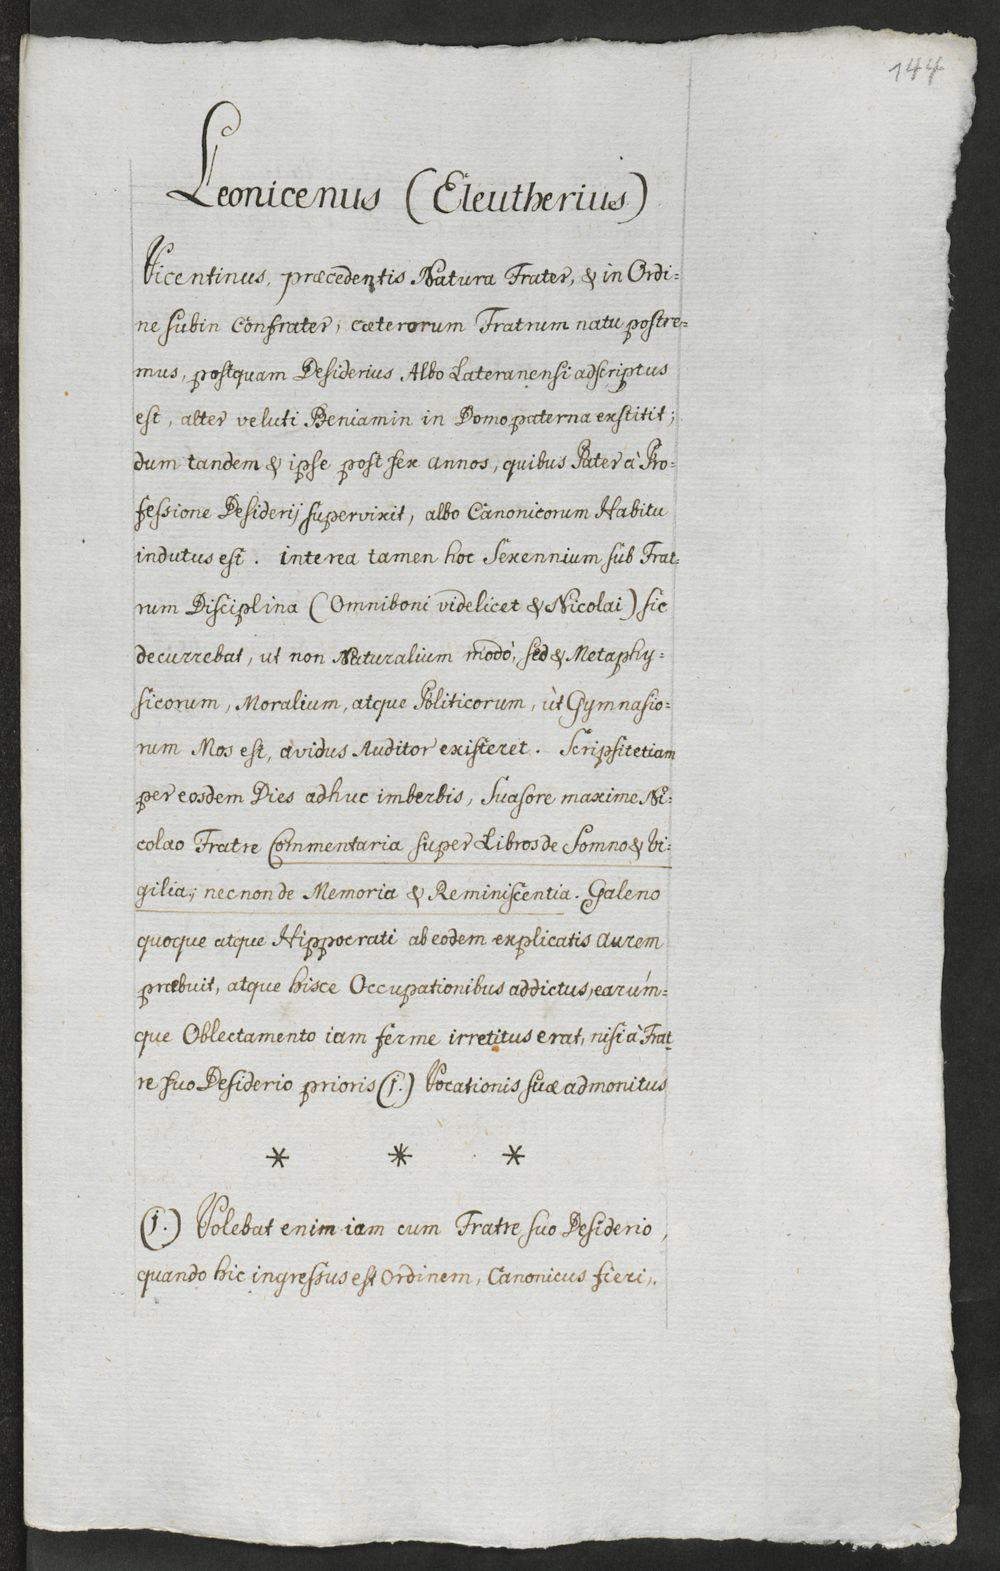 144
Leonicenus (Eleutherius)
Vicentinus, præcedentis Natura Frater, & in Ordi=
ne subin Confrater, cæterorum Fratrum natu postre=
mus, postquam Desiderius Albo Lateranensi adscriptus
est, alter veluti Beniamin in Domo paterna exstitit;
dum tandem & ipse post sex annos, quibus Pater à Pro=
fessione Desiderij supervixit, albo Canonicorum Habitu
indutus est. interea tamen hoc Sexennium sub Frat=
rum Disciplina (Omniboni videlicet & Nicolai) sic
decurrebat, ut non Naturalium modò, sed & Metaphy=
sicorum, Moralium, atque Politicorum, ùt Gymnasio=
rum Mos est, avidus Auditor existeret. Scripsit etiam
per eosdem Dies adhuc imberbis, Suasore maxime Ni=
colao Fratre Commentaria super Libros de Somno & Vi=
gilia; nec non de Memoria & Reminiscentia. Galeno
quoque atque Hippocrati ab eodem explicatis aurem
præbuit, atque hisce Occupationibus addictus, earúm=
que Oblectamento iam ferme irretitus erat, nisi à Frat=
re suo Desiderio prioris (1.) Vocationis suæ admonitus
* * *
(1.) Volebat enim iam cum Fratre suo Desiderio,
quando hic ingressus est Ordinem, Canonicus fieri,.